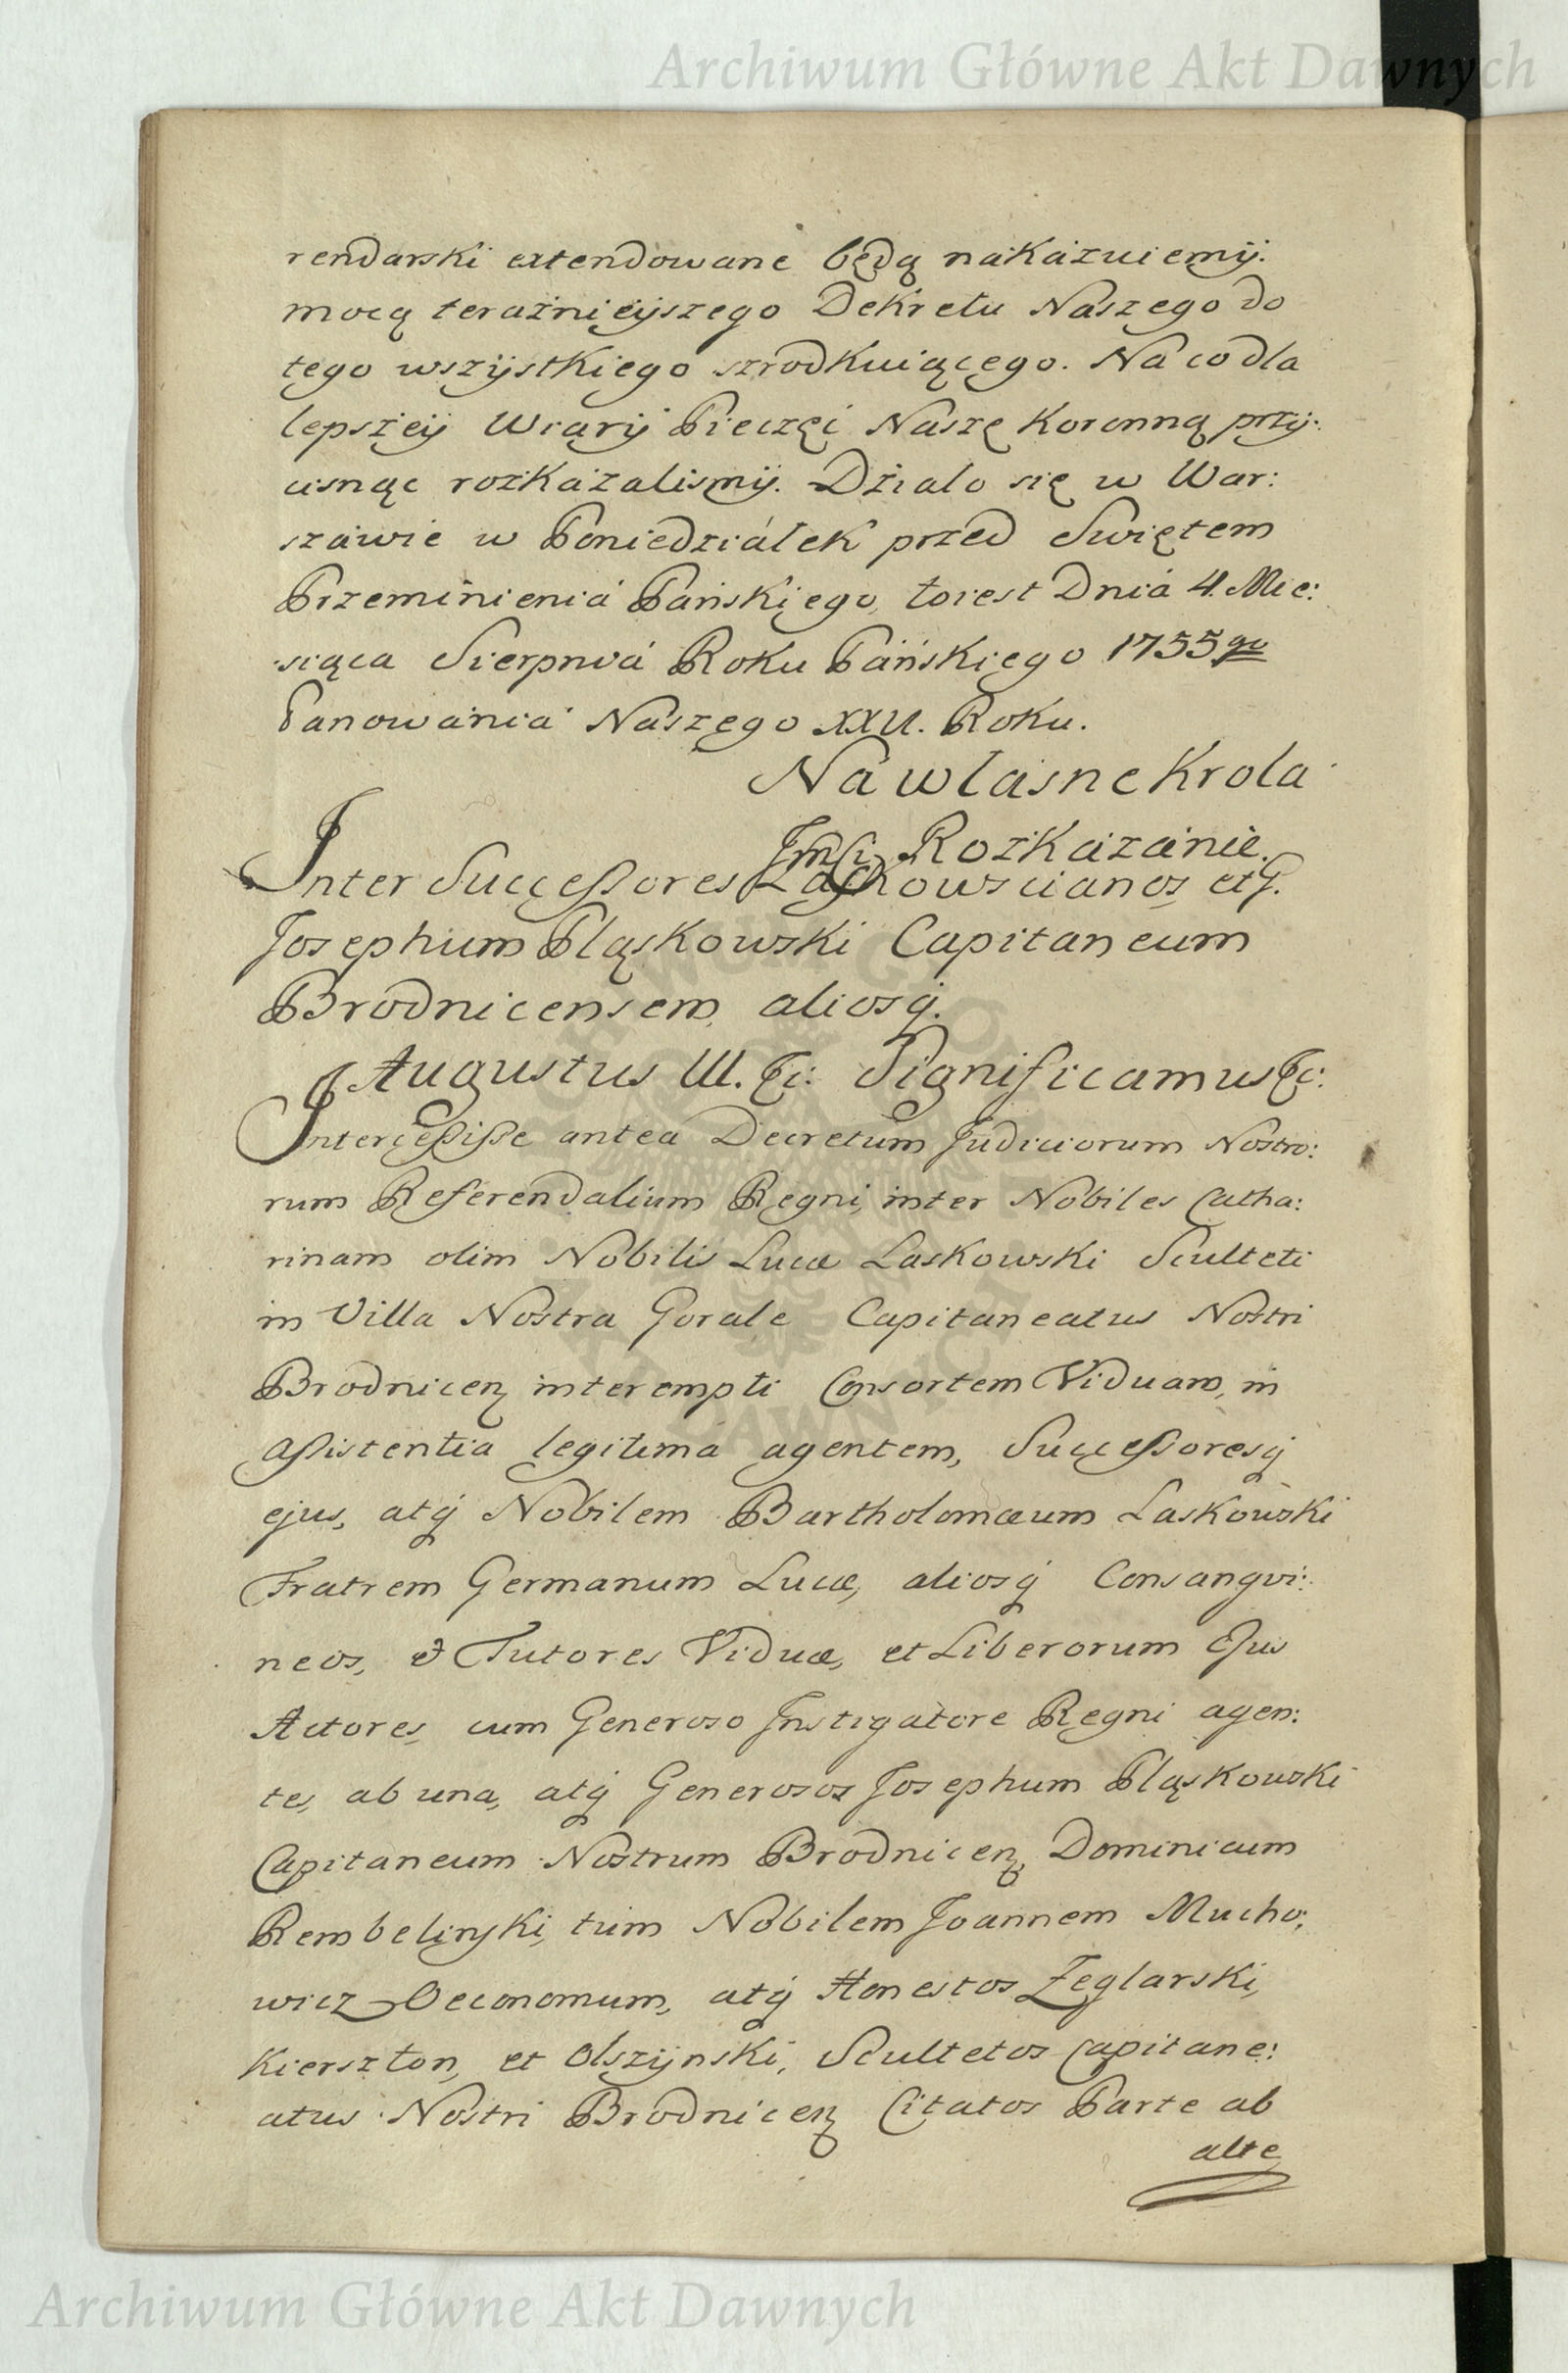 Archiwum Główne Akt Dawnych
rendarski extendowane będą nakazuiemy.
mocą teraznieyszego Dekretu Naszego do
tego wszystkiego szrodkuiącego. Na co dla
lepszey Wiary Pieczęć Naszę Koronną przy:
cisnąć rozkazalismy. Działo się w War:
szawie w Poniedziałek przed Swiętem
Przeminienia Pańskiego, to iest Dnia 4. Mie:
siąca Sierpnia Roku Pańskiego 1755 go
Panowania Naszego XXII. Roku.
Na własne Krola
Jmści Rozkazanie.
Inter Successores Laskowscianos et G.
Josephum Pląskowski Capitaneum
Brodnicensem, aliosq.
Augustus III. &c: Significamus &c:
Intercessisse antea Decretum Judiciorum Nostro:
rum Referendalium Regni, inter Nobiles Catha:
rinam olim Nobilis Lucæ Laskowski Sculteti
in Villa Nostra Gorale Capitaneatus Nostri
Brodnicen interempti Consortem Viduam, in
assistentia legitima agentem, Successoresq
ejus, atq Nobilem Bartholomæum Laskowski
Fratrem Germanum Lucæ, aliosq Consangvi:
neos, & Tutores Viduæ, et Liberorum Ejus
Actores, cum Generoso Instigatore Regni agen:
te, ab una, atq Generosos Josephum Pląskowski
Capitaneum Nostrum Brodnicen, Dominicum
Rembelinski, tum Nobilem Joannem Mucho:
wicz Oeconomum, atq Honestos Zeglarski,
Kierszton, et Olszynski, Scultetos Capitane:
atus Nostri Brodnicen Citatos Parte ab
alte
Archiwum Główne Akt Dawnych